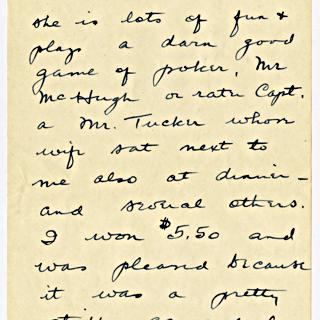 she is lots of fun &
plays a darn good
game of poker, Mr
McHugh or ratu Capt.
a Mr. Tucker whose
wife sat next to
me also at dinner –
and several others.
I won $5.50 and
was pleased because
it was a pretty